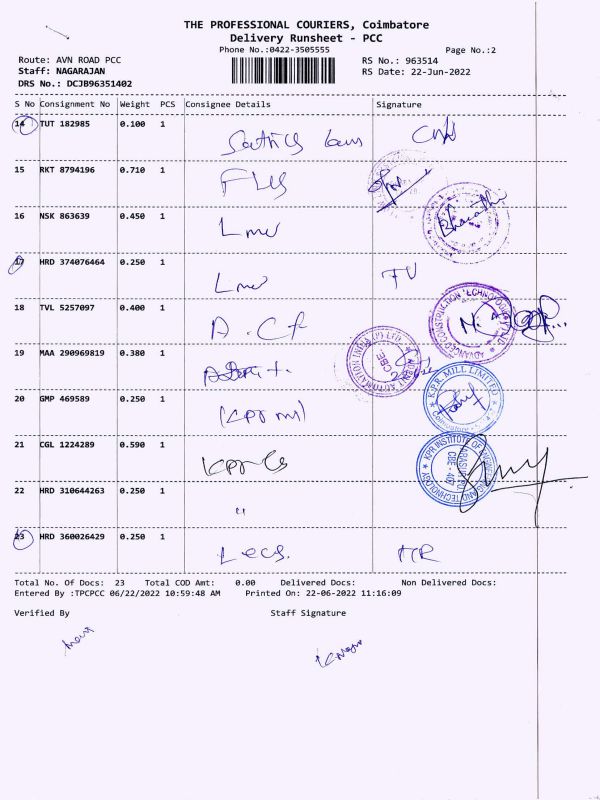 THE PROFESSIONAL COURIERS, Coimbatore
Delivery Runsheet - PCC
Phone No.:0422-3505555
Page No.:2
Route: AVN ROAD PCC
RS No.: 963514
Staff: NAGARAJAN
RS Date: 22-Jun-2022
DRS No.: DCJB96351402
S No Consignment No Weight PCS Consignee Details Signature
14 TUT 182985 0.100 1
15 RKT 8794196 0.710 1
16 NSK 863639 0.450 1 Lmw
17 HRD 374076464 0.250 1 Lmw
18 TVL 5257097 0.400 1
19 MAA 290969819 0.380 1
20 GMP 469589 0.250 1 (KPR mill)
K.P.R. MILL LIMITED
21 CGL 1224289 0.590 1
22 HRD 310644263 0.250 1 "
23 HRD 360026429 0.250 1
Total No. Of Docs: 23 Total COD Amt: 0.00 Delivered Docs: Non Delivered Docs:
Entered By :TPCPCC 06/22/2022 10:59:48 AM Printed On: 22-06-2022 11:16:09
Verified By Staff Signature